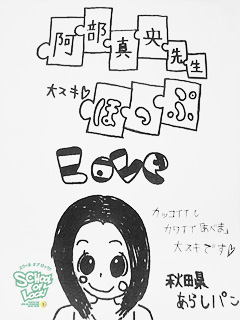 阿部真央先生
大スキ♡
ほっぷ
LOVE
カッコイイし
カワイイあべま
大スキです♡
SCHOOL
OF
LOCK!
秋田県
あらしパン